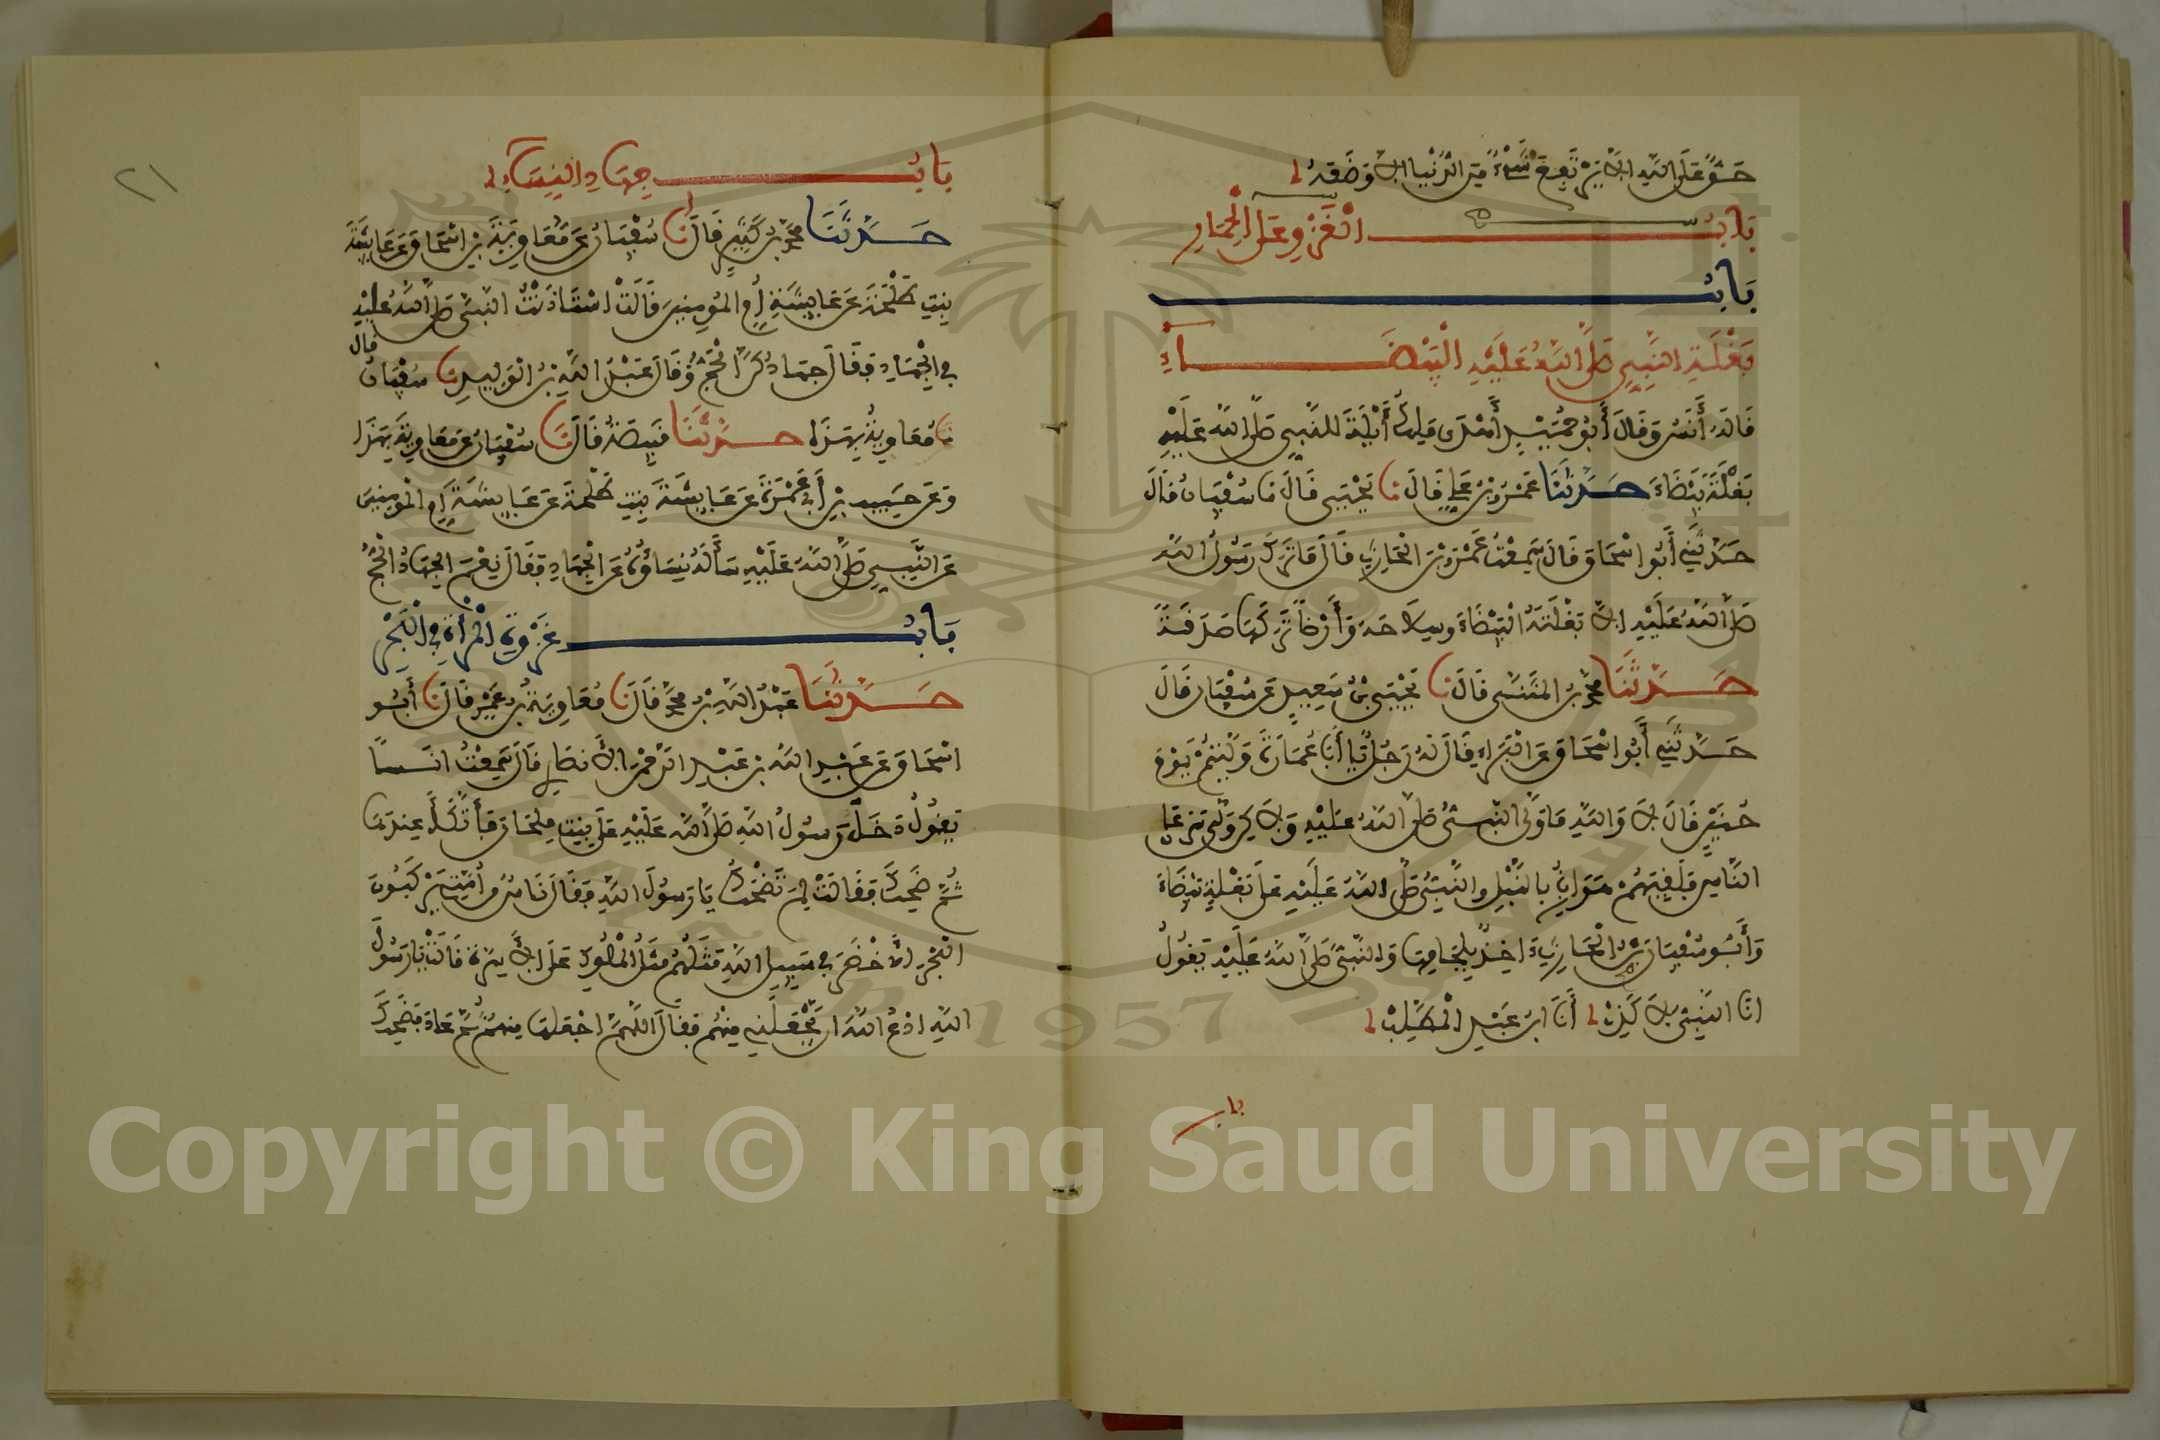 حَقٌّ عَلَى اللَّهِ أَلَّا يَرْتَفِعَ شَيْءٌ مِنَ الدُّنْيَا إِلَّا وَضَعَهُ
بَابُ الْغَزْوِ عَلَى الْحِمَارِ
بَابُ
بَغْلَةِ النَّبِيِّ صَلَّى اللَّهُ عَلَيْهِ الْبَيْضَاءِ
قَالَهُ أَنَسٌ وَقَالَ أَبُو حُمَيْدٍ أَهْدَى مَلِكُ أَيْلَةَ لِلنَّبِيِّ صَلَّى اللَّهُ عَلَيْهِ
بَغْلَةً بَيْضَاءَ حَدَّثَنَا عَمْرُو بْنُ عَلِيٍّ قَالَ نَا يَحْيَى قَالَ نَا سُفْيَانُ قَالَ
حَدَّثَنِي أَبُو إِسْحَاقَ قَالَ سَمِعْتُ عَمْرَو بْنَ الْحَارِثِ قَالَ مَا تَرَكَ رَسُولُ اللَّهِ
صَلَّى اللَّهُ عَلَيْهِ إِلَّا بَغْلَتَهُ الْبَيْضَاءَ وَسِلَاحَهُ وَأَرْضًا تَرَكَهَا صَدَقَةً
حَدَّثَنَا مُحَمَّدُ بْنُ الْمُثَنَّى قَالَ نَا يَحْيَى بْنُ سَعِيدٍ عَنْ سُفْيَانَ قَالَ
حَدَّثَنِي أَبُو إِسْحَاقَ عَنِ الْبَرَاءِ قَالَ لَهُ رَجُلٌ يَا أَبَا عُمَارَةَ وَلَّيْتُمْ يَوْمَ
حُنَيْنٍ قَالَ لَا وَاللَّهِ مَا وَلَّى النَّبِيُّ صَلَّى اللَّهُ عَلَيْهِ وَلَكِنْ وَلَّى سَرَعَانُ
النَّاسِ فَلَقِيَهُمْ هَوَازِنُ بِالنَّبْلِ وَالنَّبِيُّ صَلَّى اللَّهُ عَلَيْهِ عَلَى بَغْلَةٍ بَيْضَاءَ
وَأَبُو سُفْيَانَ بْنُ الْحَارِثِ آخِذٌ بِلِجَامِهَا وَالنَّبِيُّ صَلَّى اللَّهُ عَلَيْهِ يَقُولُ
أَنَا النَّبِيُّ لَا كَذِبْ أَنَا ابْنُ عَبْدِ الْمُطَّلِبْ
باب
٢١
بَابُ جِهَادِ النِّسَاءِ
حَدَّثَنَا مُحَمَّدُ بْنُ كَثِيرٍ قَالَ أَنَا سُفْيَانُ عَنْ مُعَاوِيَةَ بْنِ إِسْحَاقَ عَنْ عَائِشَةَ
بِنْتِ طَلْحَةَ عَنْ عَائِشَةَ أُمِّ الْمُؤْمِنِينَ قَالَتْ اسْتَأْذَنْتُ النَّبِيَّ صَلَّى اللَّهُ عَلَيْهِ
فِي الْجِهَادِ فَقَالَ جِهَادُكُنَّ الْحَجُّ وَقَالَ عَبْدُ اللَّهِ بْنُ الْوَلِيدِ نَا سُفْيَانُ قال
نَا مُعَاوِيَةُ بِهَذَا حَدَّثَنَا قَبِيصَةُ قَالَ نَا سُفْيَانُ عَنْ مُعَاوِيَةَ بِهَذَا
وَعَنْ حَبِيبِ بْنِ أَبِي عَمْرَةَ عَنْ عَائِشَةَ بِنْتِ طَلْحَةَ عَنْ عَائِشَةَ أُمِّ الْمُؤْمِنِينَ
عَنِ النَّبِيِّ صَلَّى اللَّهُ عَلَيْهِ سَأَلَهُ نِسَاؤُهُ عَنِ الْجِهَادِ فَقَالَ نِعْمَ الْجِهَادُ الْحَجُّ
بَابُ غَزْوَةِ الْمَرْأَةِ فِي الْبَحْرِ
حَدَّثَنَا عَبْدُ اللَّهِ بْنُ مُحَمَّدٍ قَالَ نَا مُعَاوِيَةُ بْنُ عَمْرٍو قَالَ نَا أَبُو
إِسْحَاقَ عَنْ عَبْدِ اللَّهِ بْنِ عَبْدِ الرَّحْمَنِ الْأَنْصَارِيِّ قَالَ سَمِعْتُ أَنَسًا
يَقُولُ دَخَلَ رَسُولُ اللَّهِ صَلَّى اللَّهُ عَلَيْهِ عَلَى بِنْتِ مِلْحَانَ فَاتَّكَأَ عِنْدَهَا
ثُمَّ ضَحِكَ فَقَالَتْ لِمَ تَضْحَكُ يَا رَسُولَ اللَّهِ فَقَالَ نَاسٌ مِنْ أُمَّتِي يَرْكَبُونَ
الْبَحْرَ الْأَخْضَرَ فِي سَبِيلِ اللَّهِ مَثَلُهُمْ مَثَلُ الْمُلُوكِ عَلَى الْأَسِرَّةِ قَالَتْ يَا رَسُولَ
اللَّهِ ادْعُ اللَّهَ أَنْ يَجْعَلَنِي مِنْهُمْ فَقَالَ اللَّهُمَّ اجْعَلْهَا مِنْهُمْ ثُمَّ عَادَ فَضَحِكَ
Copyright © King Saud University
1957